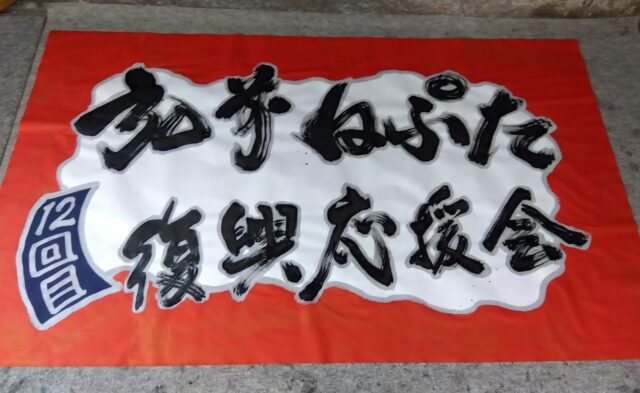 ねぷた
復興応援会
12回目